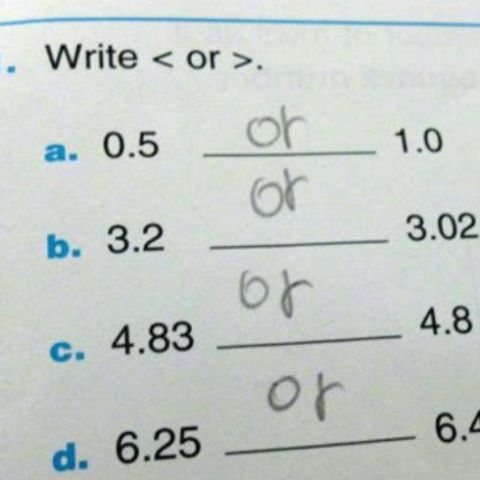 . Write < or >.
a. 0.5 or 1.0
b. 3.2 or 3.02
c. 4.83 or 4.8
d. 6.25 or